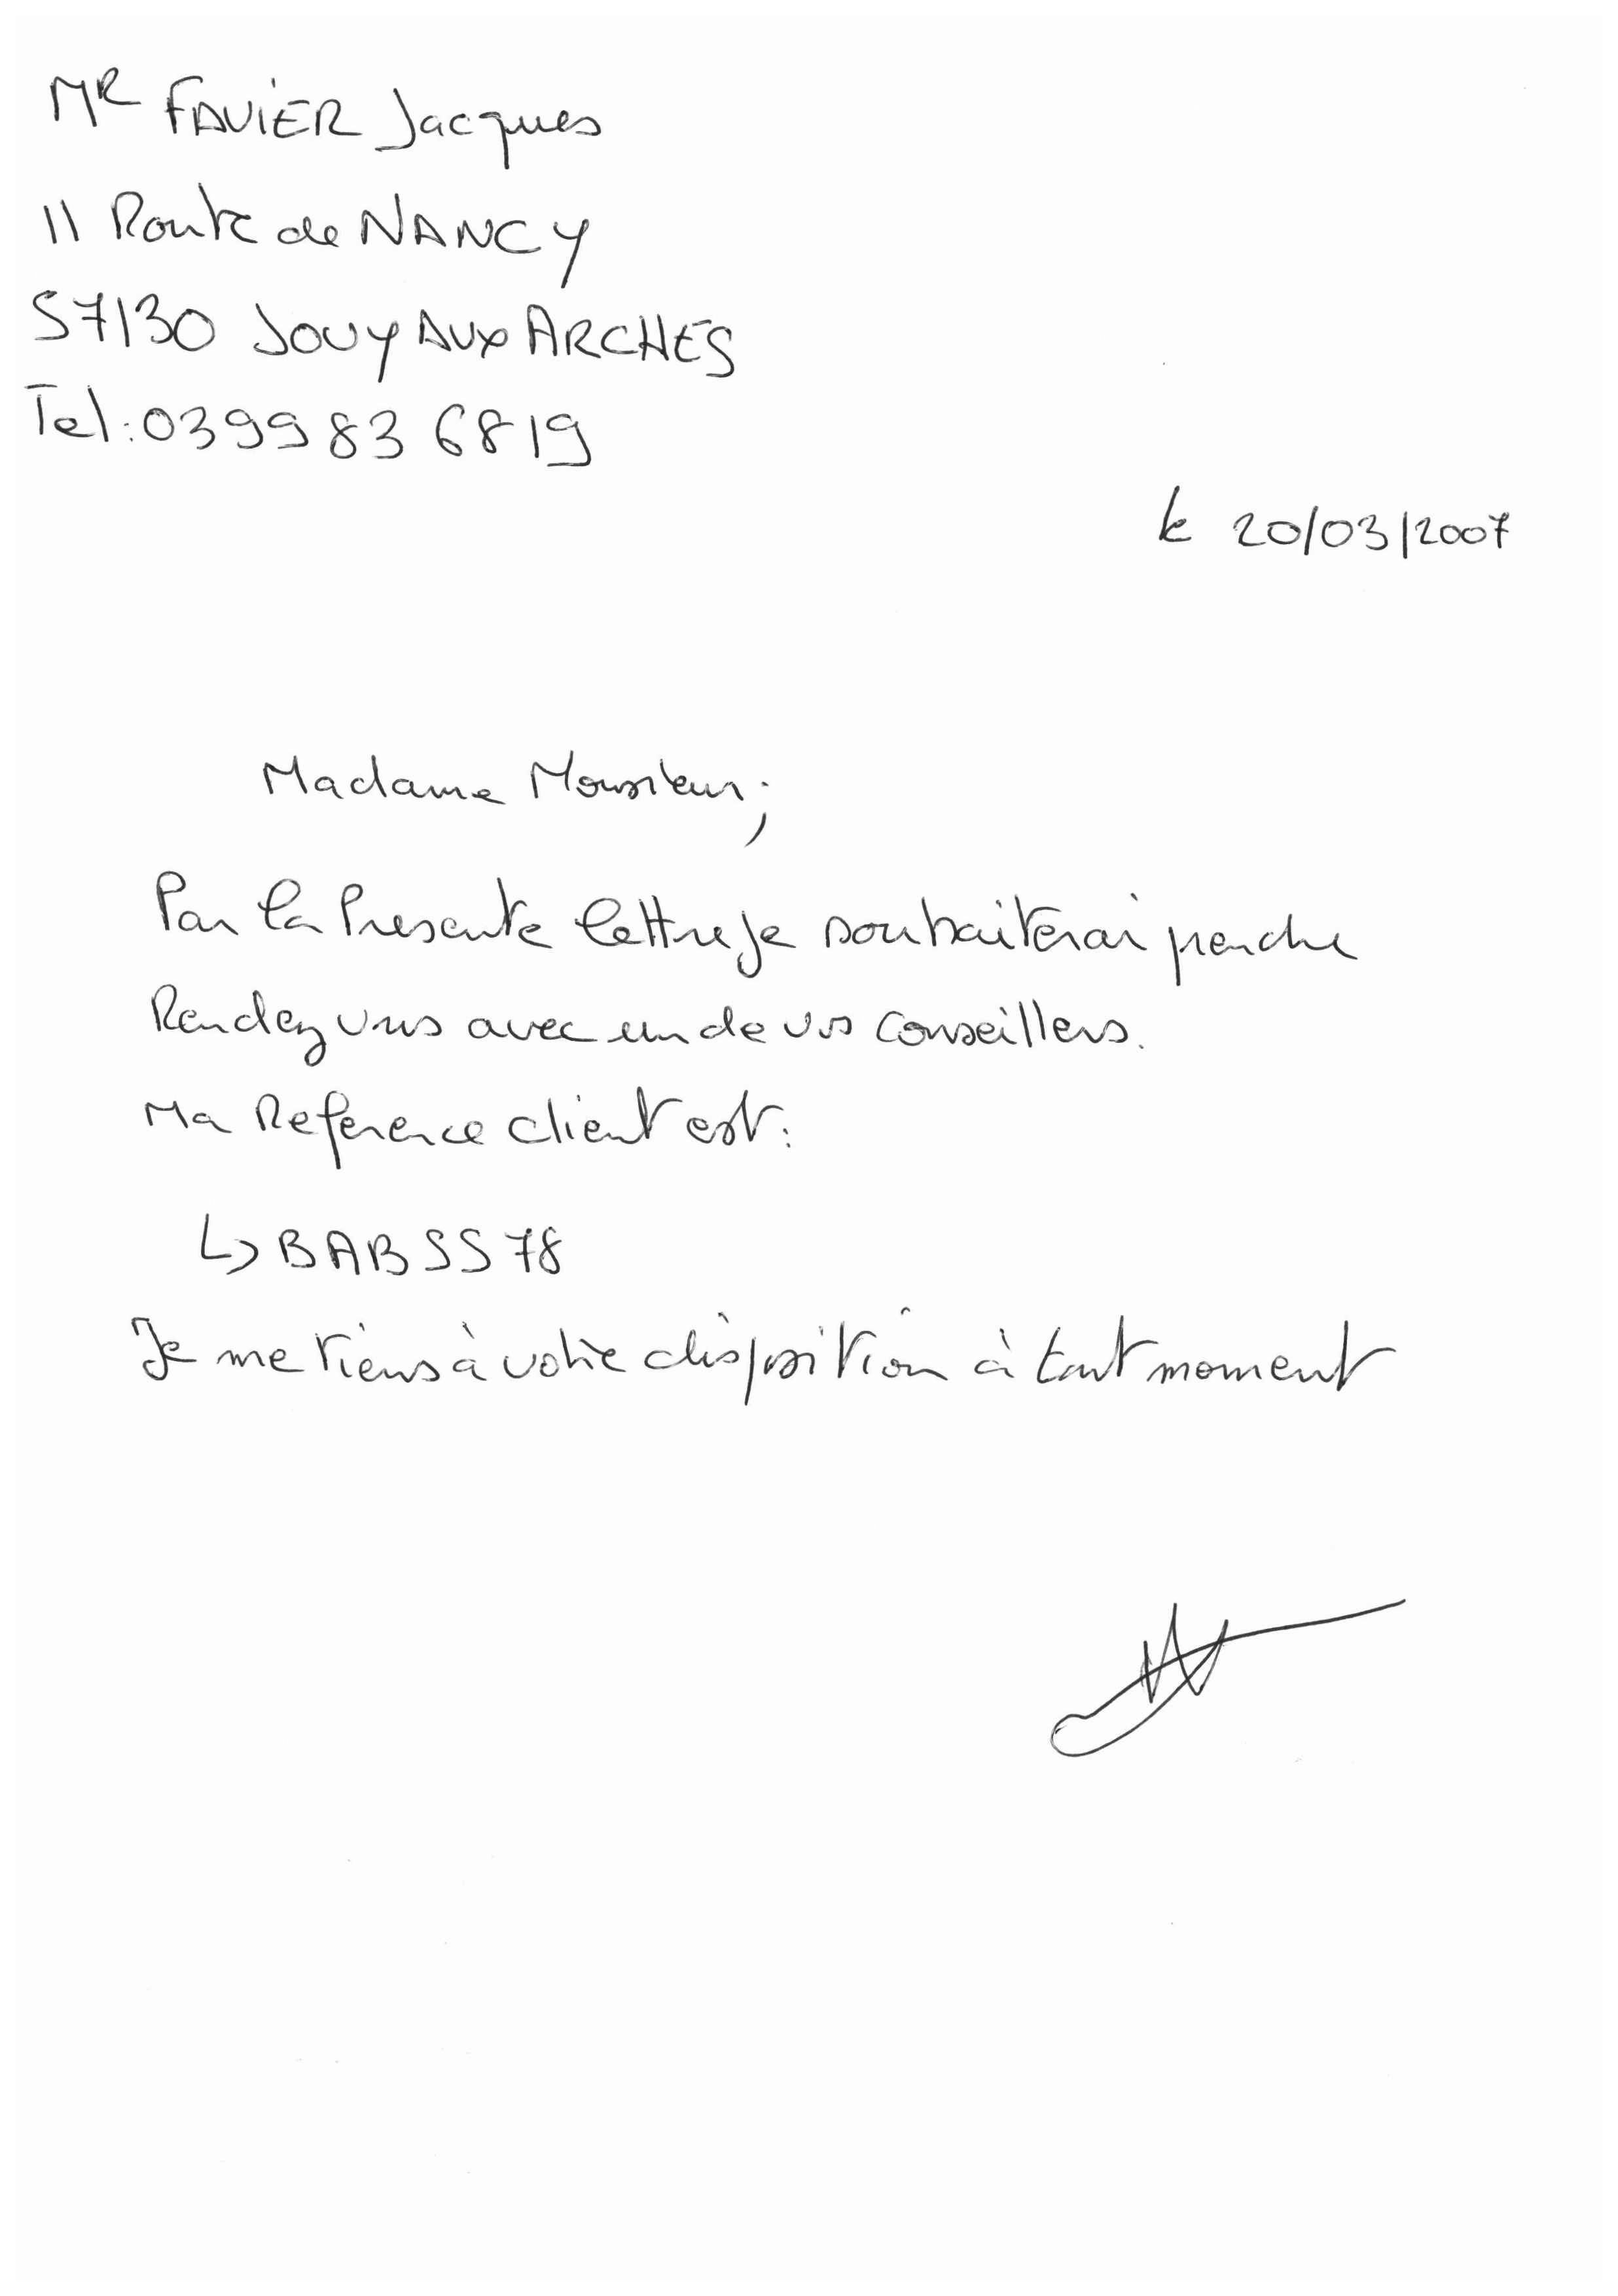 MR FAVIER Jacques
11 Route de NANCY
57130 JOUY AUX ARCHES
Tel: 03 99 83 68 19
le 20/03/2007
Madame Monsieur;
Par la Presente lettre je souhaiterai prendre
Rendez vous avec un de vos conseillers.
Ma Reference client est:
↳ BABSS78
Je me tiens à votre disposition à tout moment